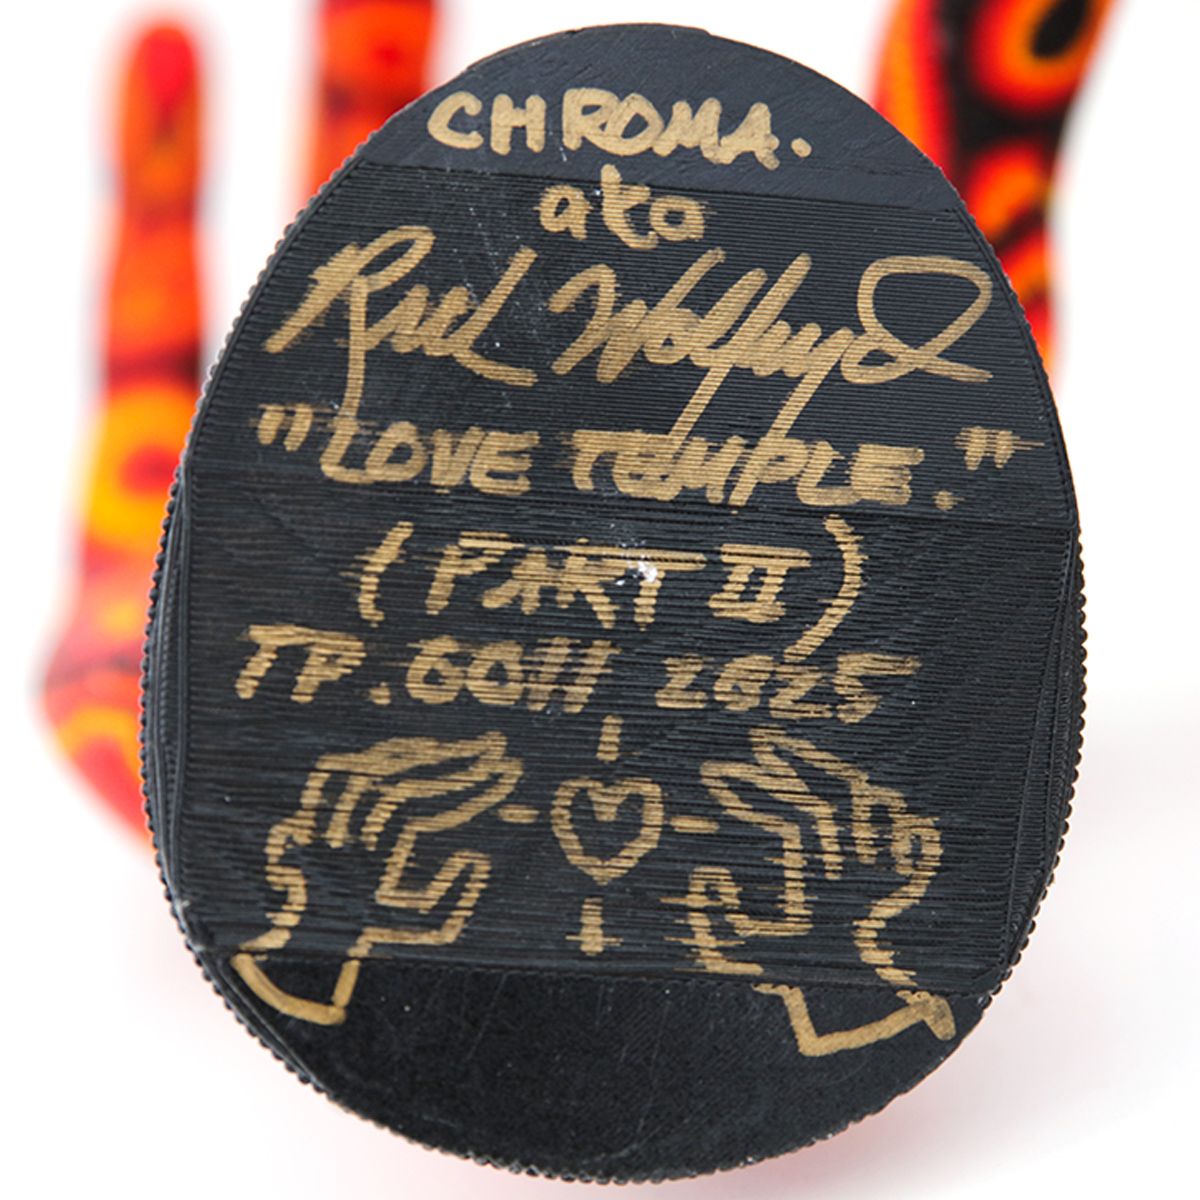 CHROMA.
aka
Rick Wolfryd
"LOVE TEMPLE."
(PART II)
2025